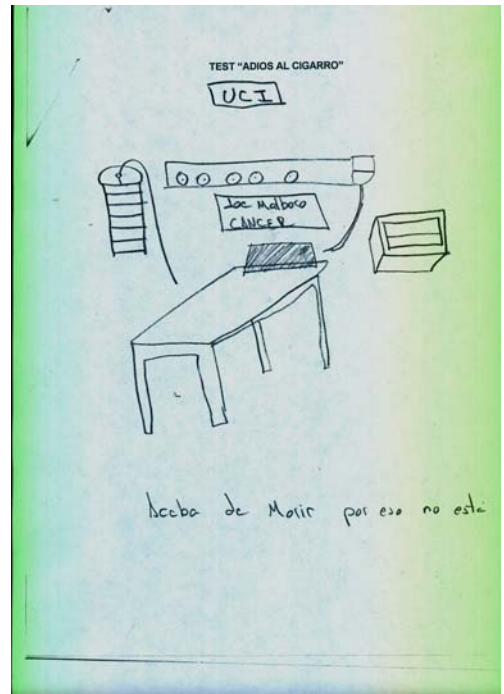 TEST "ADIOS AL CIGARRO"
UCI
Joe Malboro
CANCER
Acaba de Morir por eso no está